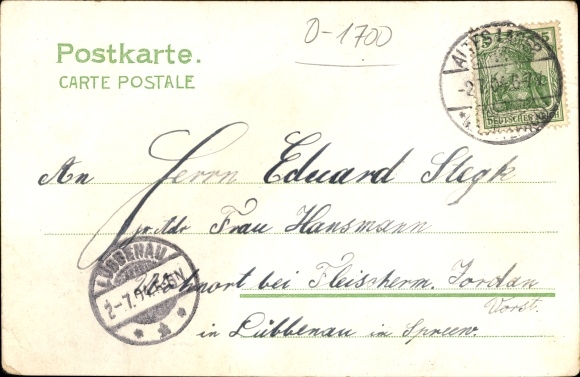 O-1700
Postkarte.
CARTE POSTALE
ALTES LAGER
DEUTSCHES REICH
An Herrn Eduard Stegk
Frau Hansmann
bei Fleischerm. Jordan
Vorst.
in Lübbenau im Spreew.
LÜBBENAU
2-7